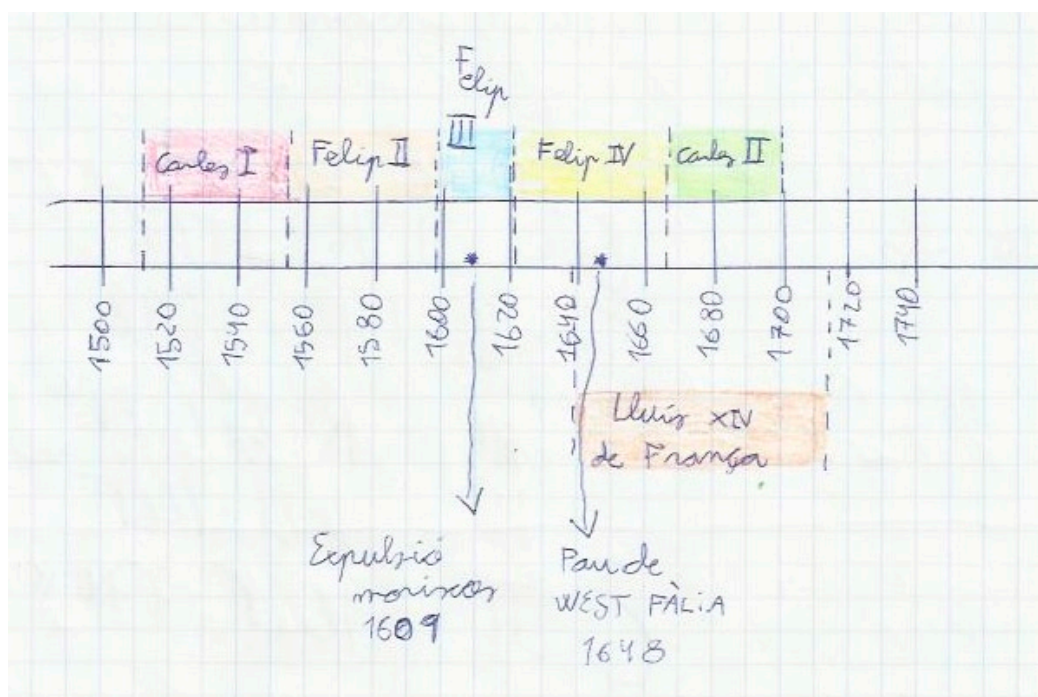 Felip
III
Carles I
Felip II
Felip IV
Carles II
1500
1520
1540
1560
1580
1600
1620
1640
1660
1680
1700
1720
1740
Lluís XIV
de França
Expulsió
moriscos
1609
Pau de
WEST FÀLiA
1648